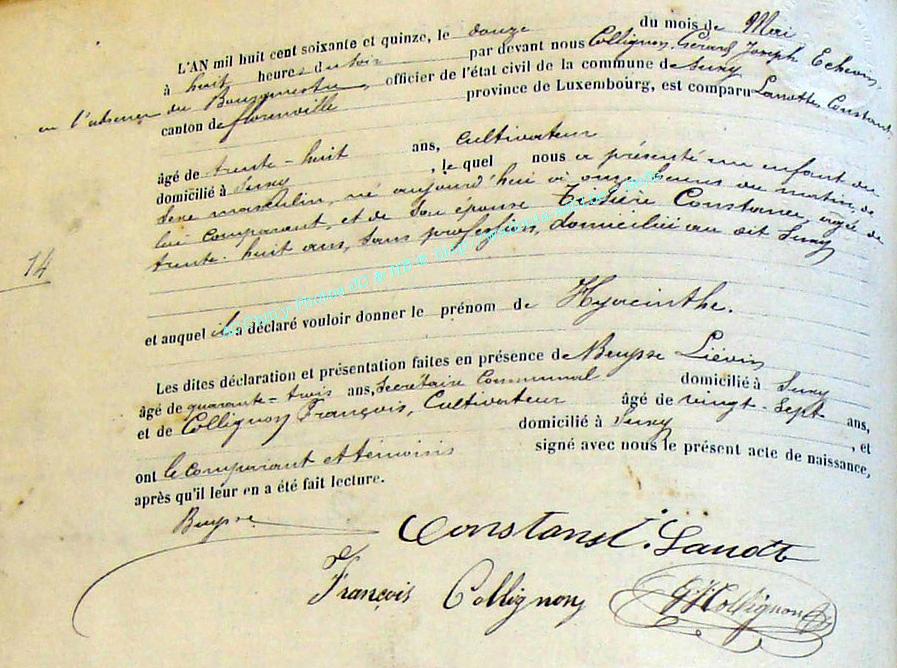 L'AN mil huit cent soixante et quinze, le douze du mois de Mai
à huit heures du soir par devant nous Collignon Gérard Joseph Echevin,
en l'absence du Bourgmestre, officier de l'état civil de la commune de Suxy
canton de florenville province de Luxembourg, est comparu Lanotte Constant
âgé de trente-huit ans, Cultivateur
domicilié à Suxy, le quel nous a présenté un enfant du
Sexe masculin, né aujourd'hui à onze heures du matin, de
lui Comparant, et de Son épouse Constance, agée de
trente-huit ans, Sans profession, domiciliée au dit Suxy
14
et auquel il a déclaré vouloir donner le prénom de Hyacinthe.
Les dites déclaration et présentation faites en présence de Buysse Liévin
âgé de quarante-trois ans, Secrétaire Communal domicilié à Suxy
et de Collignon François, Cultivateur âgé de vingt-Sept ans,
domicilié à Suxy, et
ont le Comparant et témoins signé avec nous le présent acte de naissance,
après qu'il leur en a été fait lecture.
Buysse
Constant Lanotte
François Collignon
GJCollignon